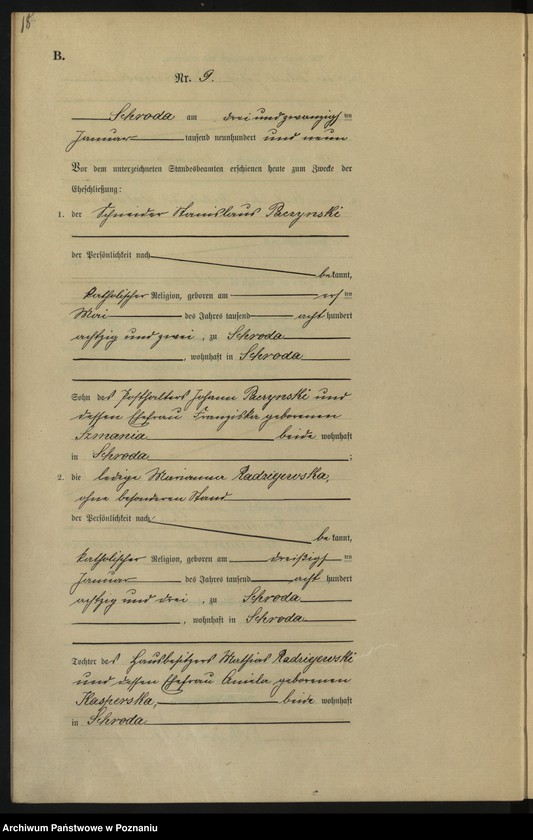 18
B.
Nr. 9.
Schroda am drei und zwanzigsten
Januar tausend neunhundert und neun
Vor dem unterzeichneten Standesbeamten erschienen heute zum Zwecke der
Eheschließung:
1. der Schneider Stanislaus Paczynski
der Persönlichkeit nach
bekannt,
katholischer Religion, geboren am ersten
Mai des Jahres tausend acht hundert
achtzig und zwei, zu Schroda
, wohnhaft in Schroda
Sohn des Posthalters Johann Paczynski und
dessen Ehefrau Franziska geborenen
Szmania beide wohnhaft
in Schroda ;
2. die ledige Marianna Radzigewska,
ohne besonderen Stand
der Persönlichkeit nach
bekannt,
katholischer Religion, geboren am dreißigsten
Januar des Jahres tausend acht hundert
achtzig und drei, zu Schroda
, wohnhaft in Schroda
Tochter des Hausbesitzers Mathias Radzigewski
und dessen Ehefrau Aniela geborenen
Kasperska, beide wohnhaft
in Schroda
Archiwum Państwowe w Poznaniu